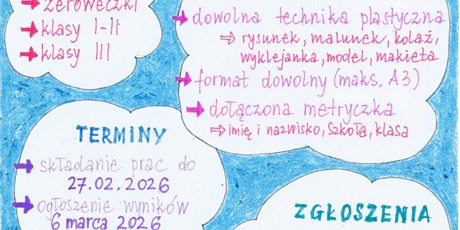 zeróweczki
klasy I-II
klasy III
dowolna technika plastyczna
rysunek, malunek, kolaż,
wyklejanka, model, makieta
format dowolny (maks. A3)
dołączona metryczka
imię i nazwisko, szkoła, klasa
TERMINY
składanie prac do
27.02.2026
ogłoszenie wyników
6 marca 2026
ZGŁOSZENIA